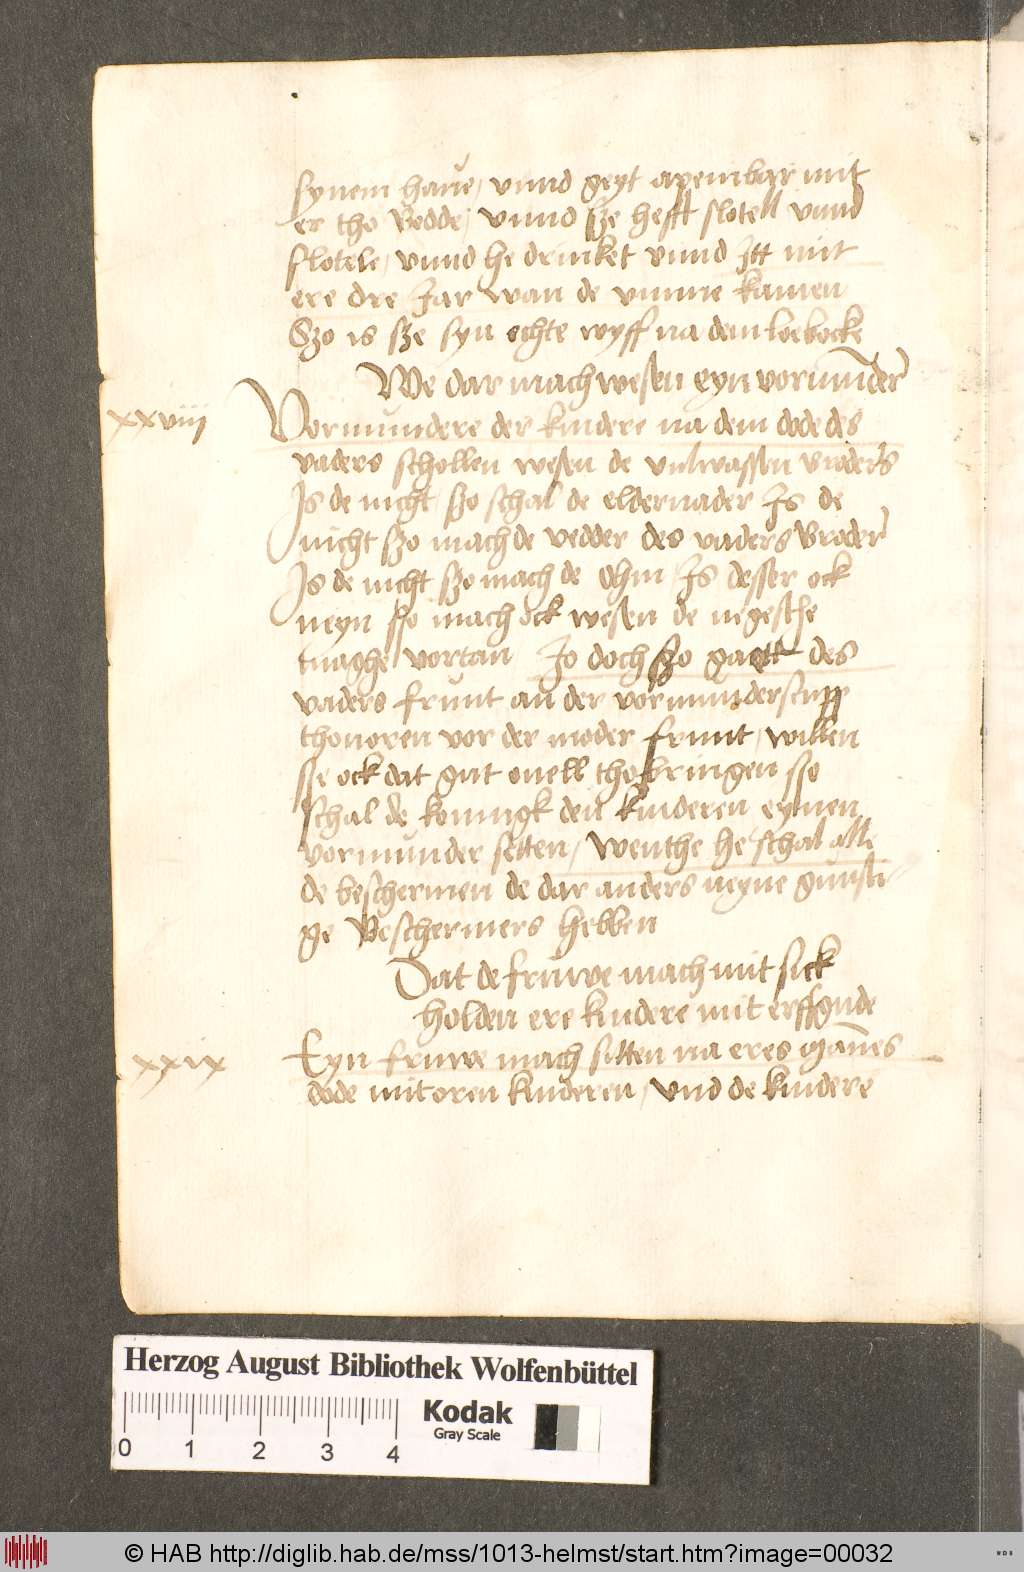 synem haue / vnnd geyt apembar mit
er tho Bedde / vnnd sze hefft slotell vnnd
slotele / vnnd he drinket vnnd Jtt mit
ere dre Jar wan de vmme kamen
Szo is sze syn echte wyff na dem loeboecke
We dar mach wesen eyn vormunder
xxviij
Vormundere der kindere na dem dode des
vaders schollen wesen de vulwassen broders
Js de nicht szo schal de eldernader Js de
nicht szo mach de vedder des vaders Broder
Js de nicht szo mach de Ohm / Js desser ock
neyn sso mach ock wesen de negesthe
maghe vortan Jo doch szo gaett des
vaders frunt an der vormunderscupp
thouoren vor der moder frunt / willen
sse ock dat gut ouell thobringen sso
schal de konnigk den kinderen eynen
vormunder setten / wenthe he schal alle
de beschermen de dar anders neyne gunsti
ge Beschermers hebben
Dat de fruwe mach mit sick
holden ere kindere mit erffgude
xxix
Eyn fruwe mach sitten na eres mannes
dode mit oren kinderen / vnd de kindere
Herzog August Bibliothek Wolfenbüttel
Kodak
Gray Scale
0 1 2 3 4
© HAB http://diglib.hab.de/mss/1013-helmst/start.htm?image=00032